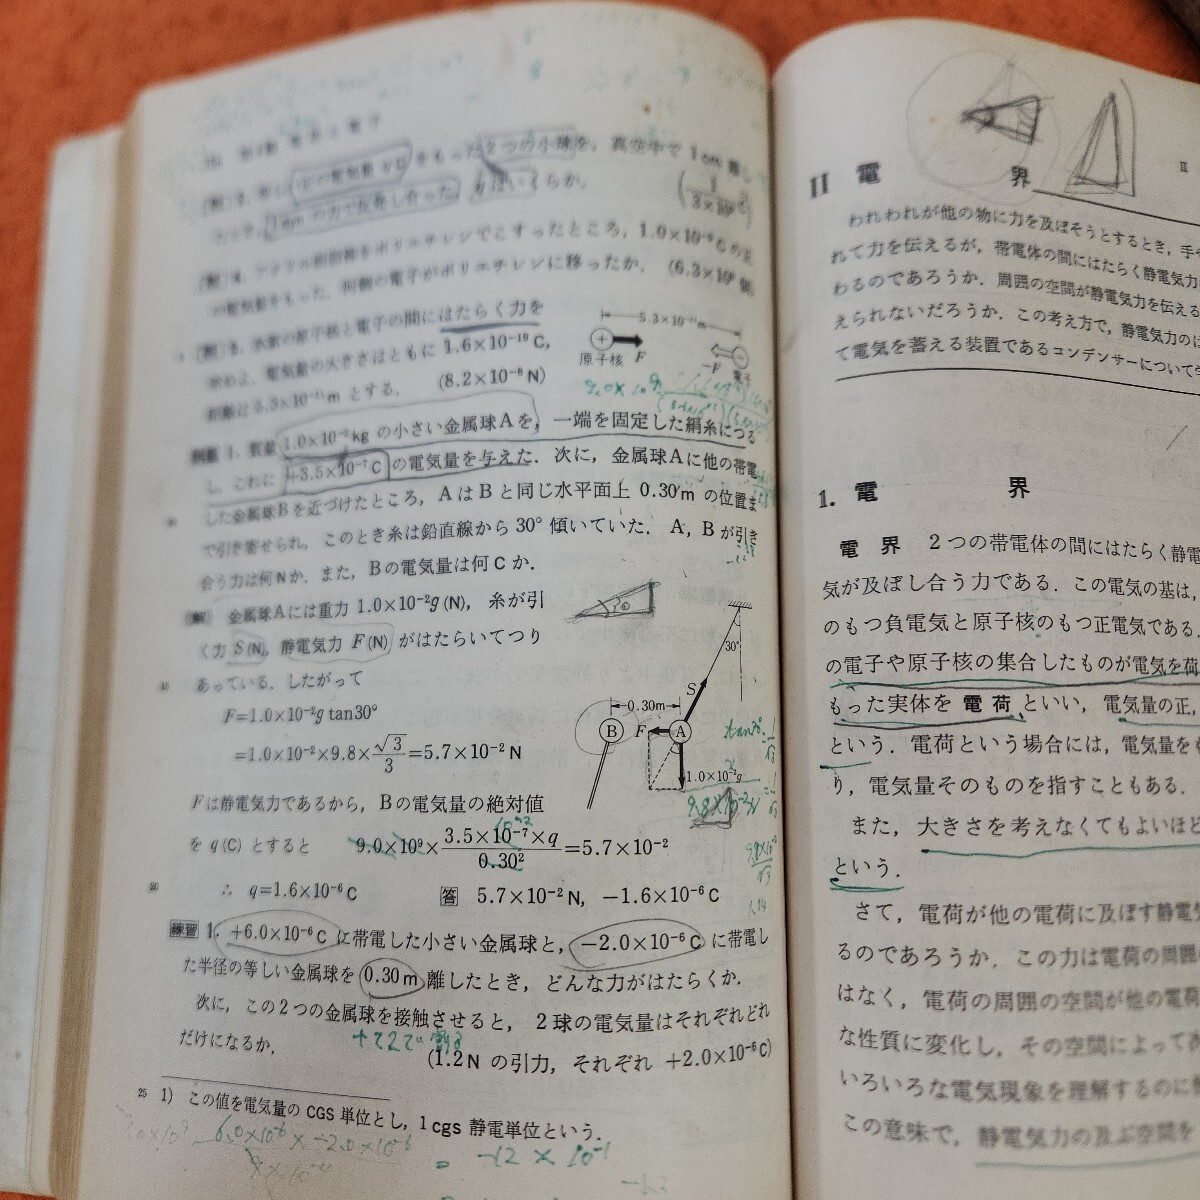 をもった2つの小球を，真空中で1cm離し
1mmの力で反発し合った．
いくらか．
の電気量をもった．何個の電子がポリエチレンに移ったか． (6.3×10⁹個)
水素の原子核と電子の間にはたらく力を
求めよ．電気量の大きさはともに 1.6×10⁻¹⁹C，
距離は5.3×10⁻¹¹m とする． (8.2×10⁻⁸N)
5.3×10⁻¹¹m
原子核 F
−F 電子
例題 1. 質量 1.0×10⁻²kg の小さい金属球Aを，一端を固定した絹糸につる
し，これに +3.5×10⁻⁷C の電気量を与えた．次に，金属球Aに他の帯電
した金属球Bを近づけたところ，AはBと同じ水平面上 0.30m の位置ま
で引き寄せられ，このとき糸は鉛直線から 30° 傾いていた．A，Bが引き
合う力は何Nか．また，Bの電気量は何Cか．
(解) 金属球Aには重力 1.0×10⁻²g (N)，糸が引
く力 S(N)，静電気力 F(N) がはたらいてつり
15 あっている．したがって
F=1.0×10⁻²g tan30°
=1.0×10⁻²×9.8×√3/3=5.7×10⁻² N
30°
S
0.30m
B F A
1.0×10⁻²g
tan30°
9.8×10⁻²N
Fは静電気力であるから，Bの電気量の絶対値
を q(C) とすると 9.0×10⁹×3.5×10⁻⁷×q/0.30²=5.7×10⁻²
20 ∴ q=1.6×10⁻⁶C 答 5.7×10⁻²N，−1.6×10⁻⁶C
練習 1. +6.0×10⁻⁶C に帯電した小さい金属球と，−2.0×10⁻⁶C に帯電し
た半径の等しい金属球を 0.30m 離したとき，どんな力がはたらくか．
次に，この2つの金属球を接触させると，2球の電気量はそれぞれどれ
だけになるか．
(1.2N の引力，それぞれ +2.0×10⁻⁶C)
25 1) この値を電気量の CGS 単位とし，1 cgs 静電単位という．
6.0×10⁻⁶ × −2.0×10⁻⁶
= −12 × 10⁻¹
II 電 界
II
われわれが他の物に力を及ぼそうとするとき，手や
れて力を伝えるが，帯電体の間にはたらく静電気力
わるのであろうか．周囲の空間が静電気力を伝える
えられないだろうか．この考え方で，静電気力のは
て電気を蓄える装置であるコンデンサーについて学
1. 電 界
電 界 2つの帯電体の間にはたらく静電
気が及ぼし合う力である．この電気の基は，
のもつ負電気と原子核のもつ正電気である．
の電子や原子核の集合したものが電気を荷
もった実体を 電荷 といい，電気量の正，
という．電荷という場合には，電気量をも
り，電気量そのものを指すこともある．
また，大きさを考えなくてもよいほど
という．
さて，電荷が他の電荷に及ぼす静電気
るのであろうか．この力は電荷の周囲
はなく，電荷の周囲の空間が他の電荷
な性質に変化し，その空間によって
いろいろな電気現象を理解するのに
この意味で，静電気力の及ぶ空間を